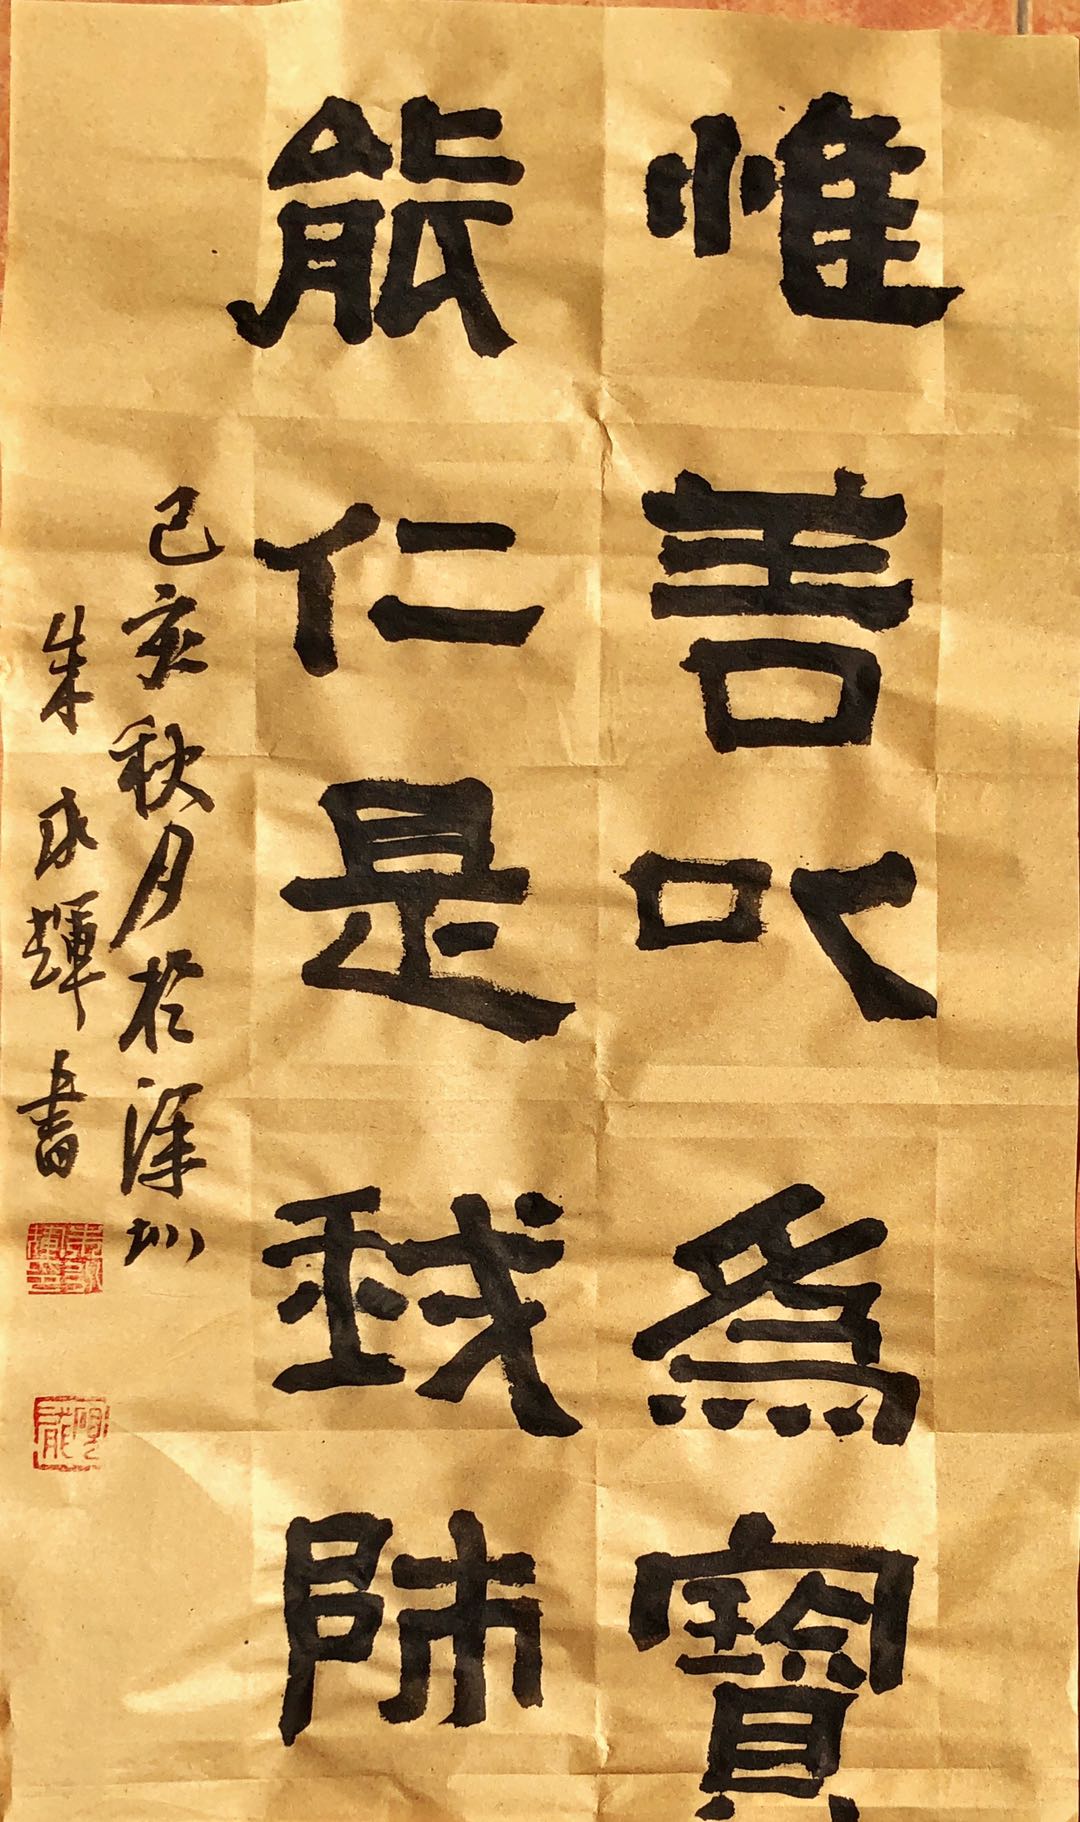 惟善㕥為寶
能仁是我師
己亥秋月於深圳
朱永輝書